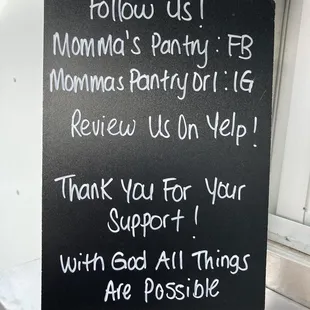 Follow Us!
Momma's Pantry : FB
Mommas Pantry Orl : IG
Review Us On Yelp!
Thank You For Your
Support!
With God All Things
Are Possible